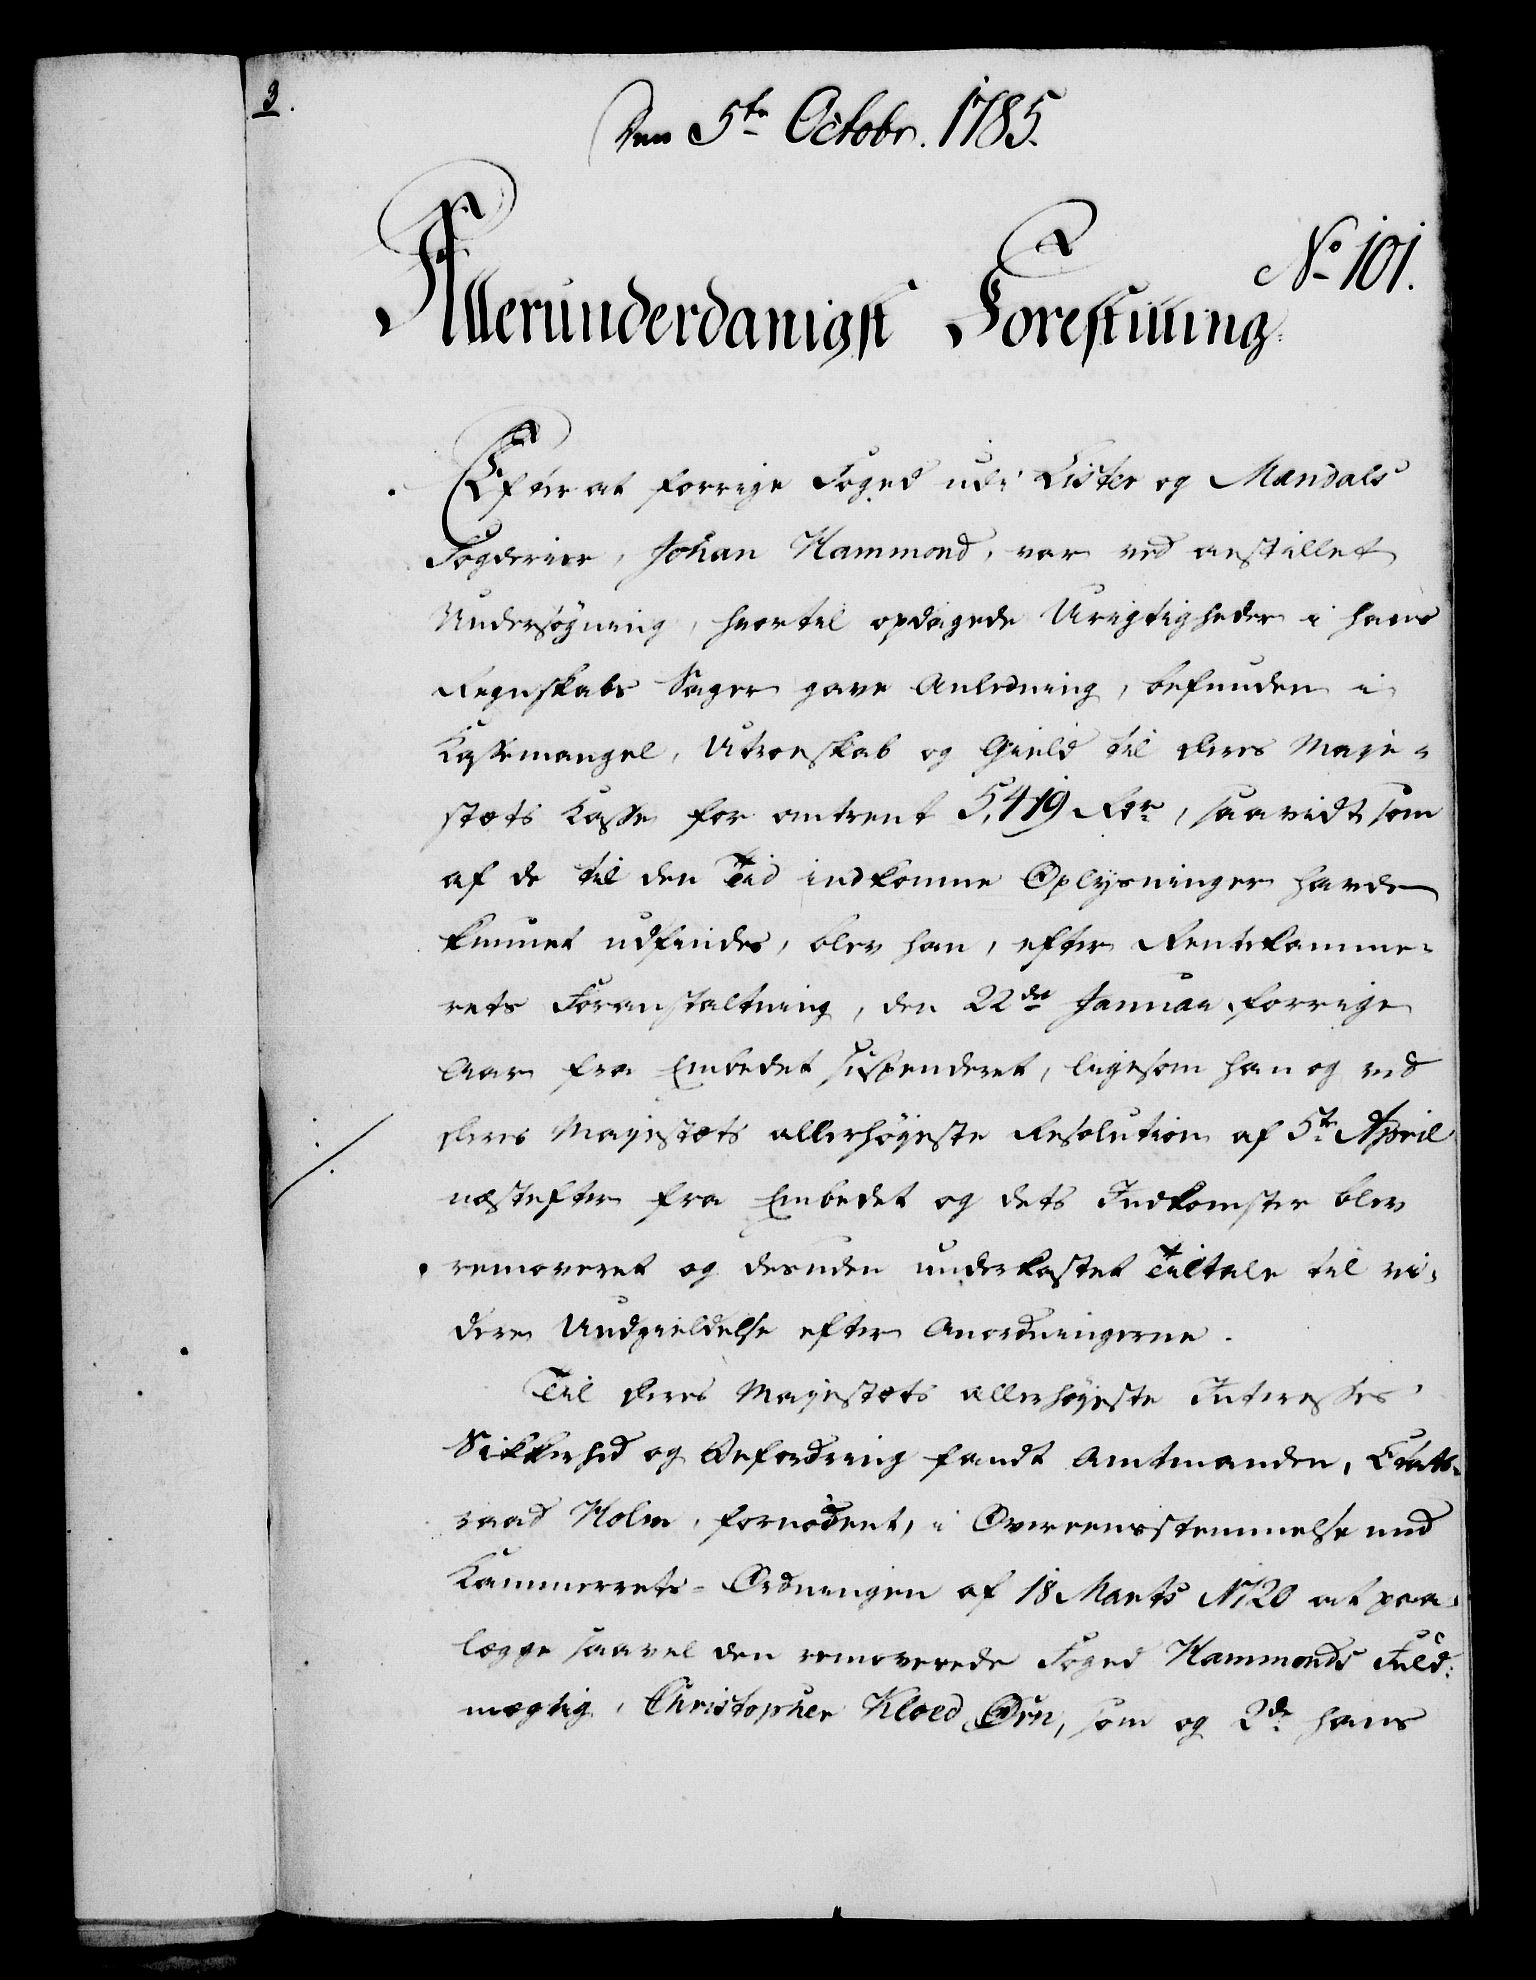 3.
Den 5te Octobr. 1785.
No 101.
Allerunderdanigst Forestilling.
Efter at forrige Foged udi Lister og Mandals
Fogderier, Johan Hammond, var ved anstillet
Undersøgning, hvortil opdagede Urigtigheder i hans
Regnskabs Sager gave Anledning, befunden i
Kassemangel, Utroeskab og Gield til Deres Maje-
stæts Kasse for omtrent 5,419 Rdr, saavidt som
af de til den Tid indkomne Oplysninger havde
kunnet udfindes, blev han, efter Rentekamme-
rets Foranstaltning, den 22de Januar forrige
Aar fra Embedet suspenderet, ligesom han og ved
Deres Majestæts allerhøjeste Resolution af 5te April
næstefter fra Embedet og dets Indkomster blev
removeret og desuden underkastet Tiltale til vi-
dere Undgieldelse efter Anordningerne.
Til Deres Majestæts allerhøjeste Interesses
Sikkerhed og Befordring fandt Amtmanden, Etats-
raad Holm, fornødent, i Overeensstemmelse med
Kammerrets-Ordningen af 18 Marts 1720 at paa-
lægge saavel den removerede Foged Hammonds Fuld-
mægtig, Christopher KloedØrn, som og 2de hans